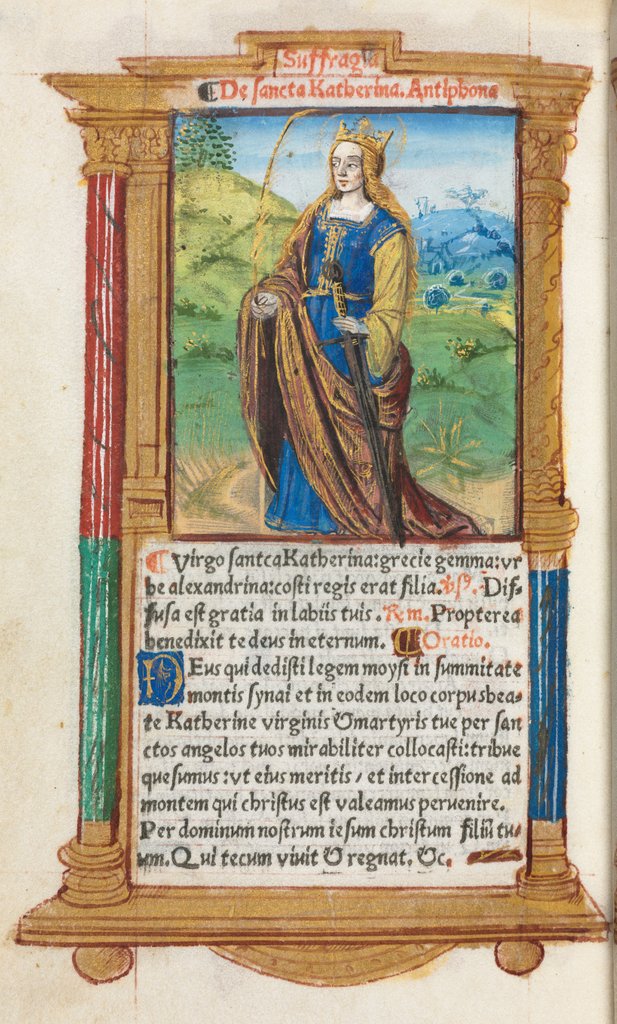 Suffragia
De sancta Katherina. Antiphona
Virgo santca Katherina: grecie gemma: vr
be alexandrina: costi regis erat filia. vs. Dif-
fusa est gratia in labiis tuis. R. m. Propterea
benedixit te deus in eternum. Oratio.
DEus qui dedisti legem moysi in summitate
montis synai et in eodem loco corpus bea-
te Katherine virginis & martyris tue per san
ctos angelos tuos mirabiliter collocasti: tribue
quesumus: vt eius meritis / et intercessione ad
montem qui christus est valeamus peruenire.
Per dominum nostrum iesum christum filiū tu-
um. Qui tecum viuit & regnat. &c.